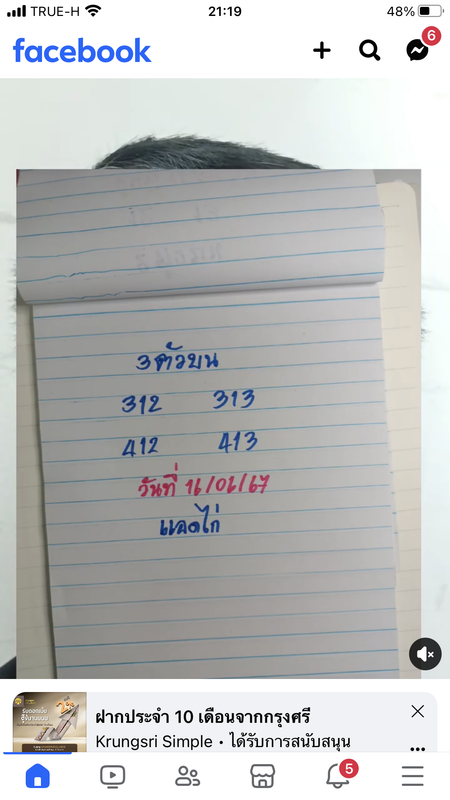 TRUE-H 21:19 48%
facebook
6
3ตัวบน
312 313
412 413
วันที่ 16/06/67
แอดไก่
ฝากประจำ 10 เดือนจากกรุงศรี
Krungsri Simple • ได้รับการสนับสนุน
5